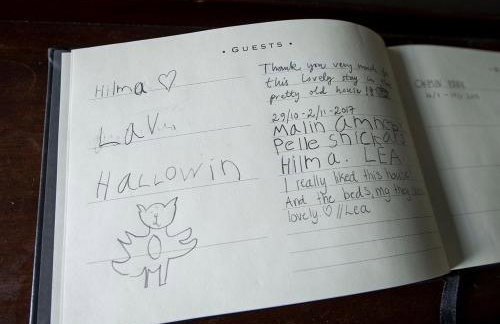 • GUESTS •
Hilma ♡
LaV
HALLOWIN
Thank you very much for
this lovely stay in
pretty old house !!
29/10 - 2/11 - 2017
Malin
Pelle Snickars
Hilma. LEA
I really liked this house!
And the beds, my they
lovely. ♡ //Lea